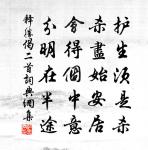 护生须是杀
杀盡始安居
会得個中意
分明在半途
释胜偈二首詞典網集